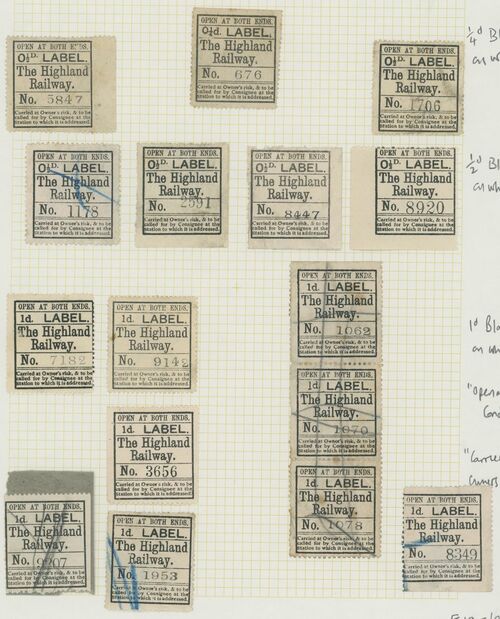 OPEN AT BOTH ENDS.
0½D. LABEL.
The Highland
Railway.
No. 5847
Carried at Owner's risk, & to be
called for by Consignee at the
Station to which it is addressed.
OPEN AT BOTH ENDS.
0½d. LABEL.
The Highland
Railway.
No. 676
Carried at Owner's risk, & to be
called for by Consignee at the
Station to which it is addressed.
OPEN AT BOTH ENDS.
0½D. LABEL.
The Highland
Railway.
No. 1706
Carried at Owner's risk, & to be
called for by Consignee at the
Station to which it is addressed.
¼d Bl
as wh
OPEN AT BOTH ENDS.
0½D. LABEL.
The Highland
Railway.
No. 1178
Carried at Owner's risk, & to be
called for by Consignee at the
Station to which it is addressed.
OPEN AT BOTH ENDS.
0½D. LABEL.
The Highland
Railway.
No. 2591
Carried at Owner's risk, & to be
called for by Consignee at the
Station to which it is addressed.
OPEN AT BOTH ENDS.
0½D. LABEL.
The Highland
Railway.
No. 8447
Carried at Owner's risk, & to be
called for by Consignee at the
Station to which it is addressed.
OPEN AT BOTH ENDS.
0½D. LABEL.
The Highland
Railway.
No. 8920
Carried at Owner's risk, & to be
called for by Consignee at the
Station to which it is addressed.
½d Bl
as wh
OPEN AT BOTH ENDS.
1d. LABEL.
The Highland
Railway.
No. 7182
Carried at Owner's risk, & to be
called for by Consignee at the
Station to which it is addressed.
OPEN AT BOTH ENDS.
1d. LABEL.
The Highland
Railway.
No. 9142
Carried at Owner's risk, & to be
called for by Consignee at the
Station to which it is addressed.
OPEN AT BOTH ENDS.
1d. LABEL.
The Highland
Railway.
No. 1062
Carried at Owner's risk, & to be
called for by Consignee at the
Station to which it is addressed.
1d Bla
on wh
OPEN AT BOTH ENDS.
1d. LABEL.
The Highland
Railway.
No. 1070
Carried at Owner's risk, & to be
called for by Consignee at the
Station to which it is addressed.
"Open a
OPEN AT BOTH ENDS.
1d. LABEL.
The Highland
Railway.
No. 3656
Carried at Owner's risk, & to be
called for by Consignee at the
Station to which it is addressed.
OPEN AT BOTH ENDS.
1d. LABEL.
The Highland
Railway.
No. 1078
Carried at Owner's risk, & to be
called for by Consignee at the
Station to which it is addressed.
"Carrie
Owners
OPEN AT BOTH ENDS.
1d. LABEL.
The Highland
Railway.
No. 9207
Carried at Owner's risk, & to be
called for by Consignee at the
Station to which it is addressed.
OPEN AT BOTH ENDS.
1d. LABEL.
The Highland
Railway.
No. 1953
Carried at Owner's risk, & to be
called for by Consignee at the
Station to which it is addressed.
OPEN AT BOTH ENDS.
1d. LABEL.
The Highland
Railway.
No. 8349
Carried at Owner's risk, & to be
called for by Consignee at the
Station to which it is addressed.